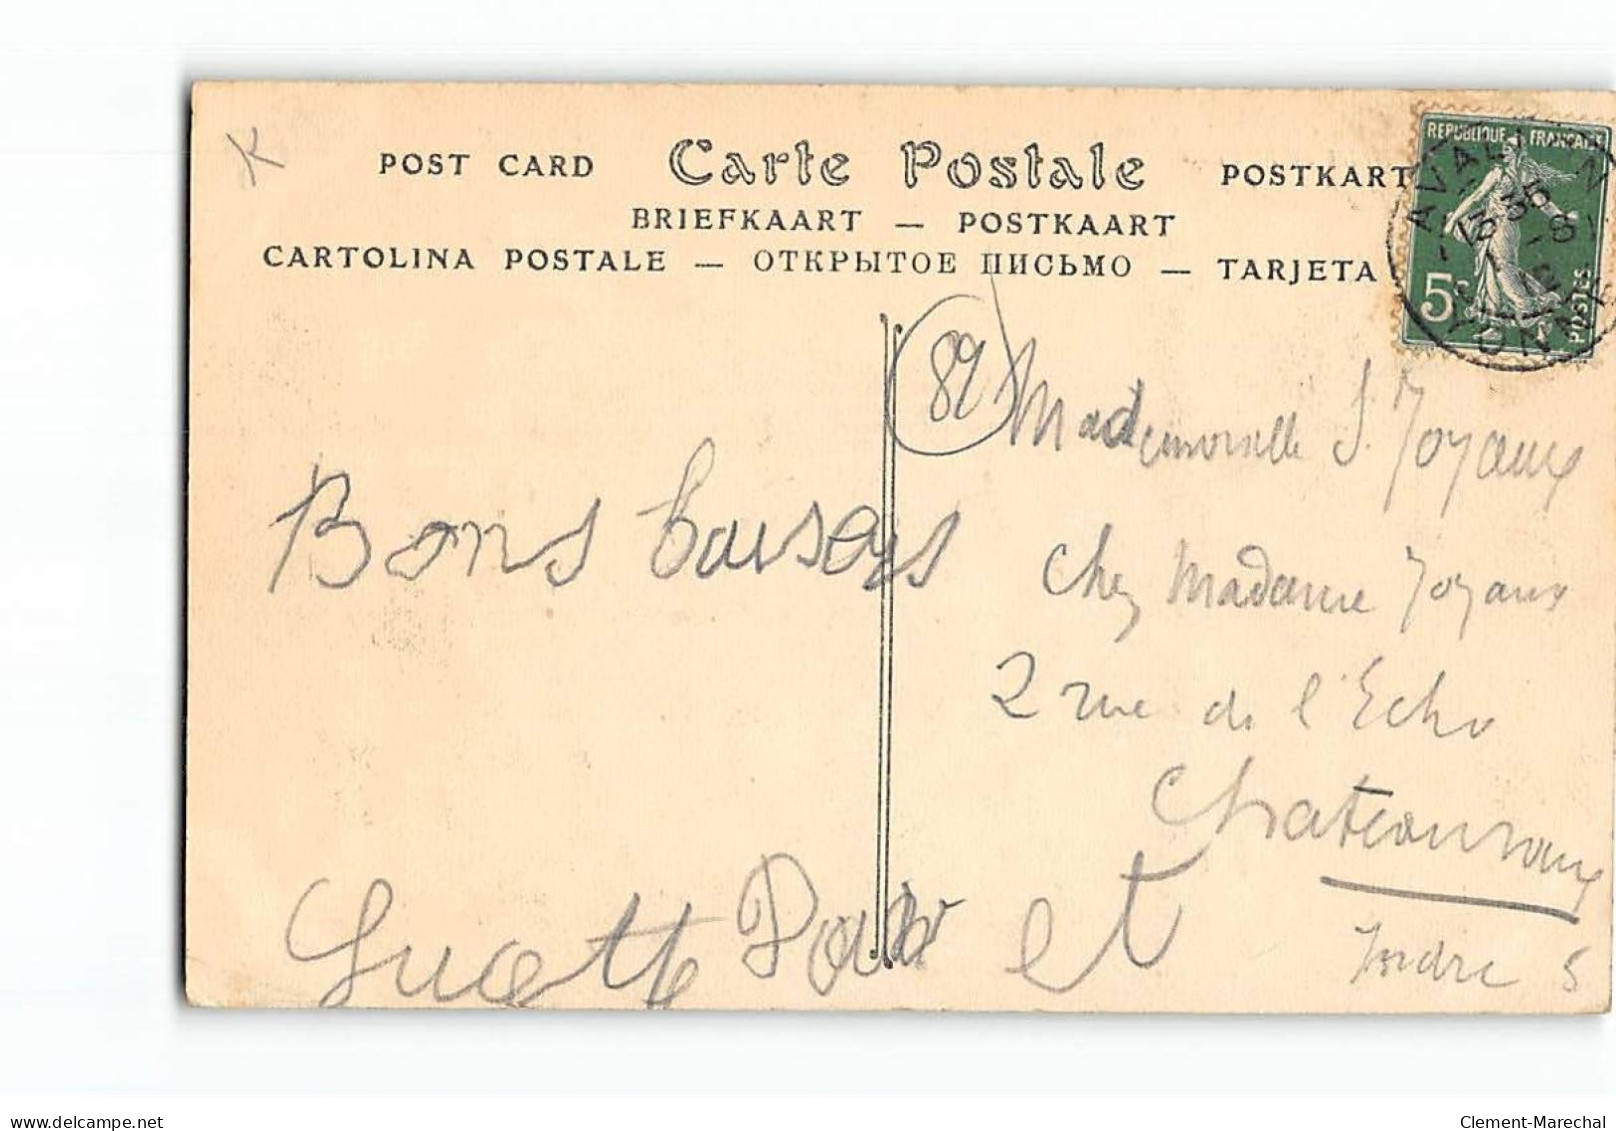 K
POST CARD Carte Postale POSTKART
BRIEFKAART — POSTKAART
CARTOLINA POSTALE — ОТКРЫТОЕ ПИСЬМО — TARJETA
REPUBLIQUE FRANÇAISE
5c
POSTES
AVALLON
13 35
YONNE
89
Bons baisers
Lucette
et
Mademoiselle S. Joyaux
chez Madame Joyaux
2 rue de l'Echo
Chateauroux
Indre
delcampe.net
Clement-Marechal